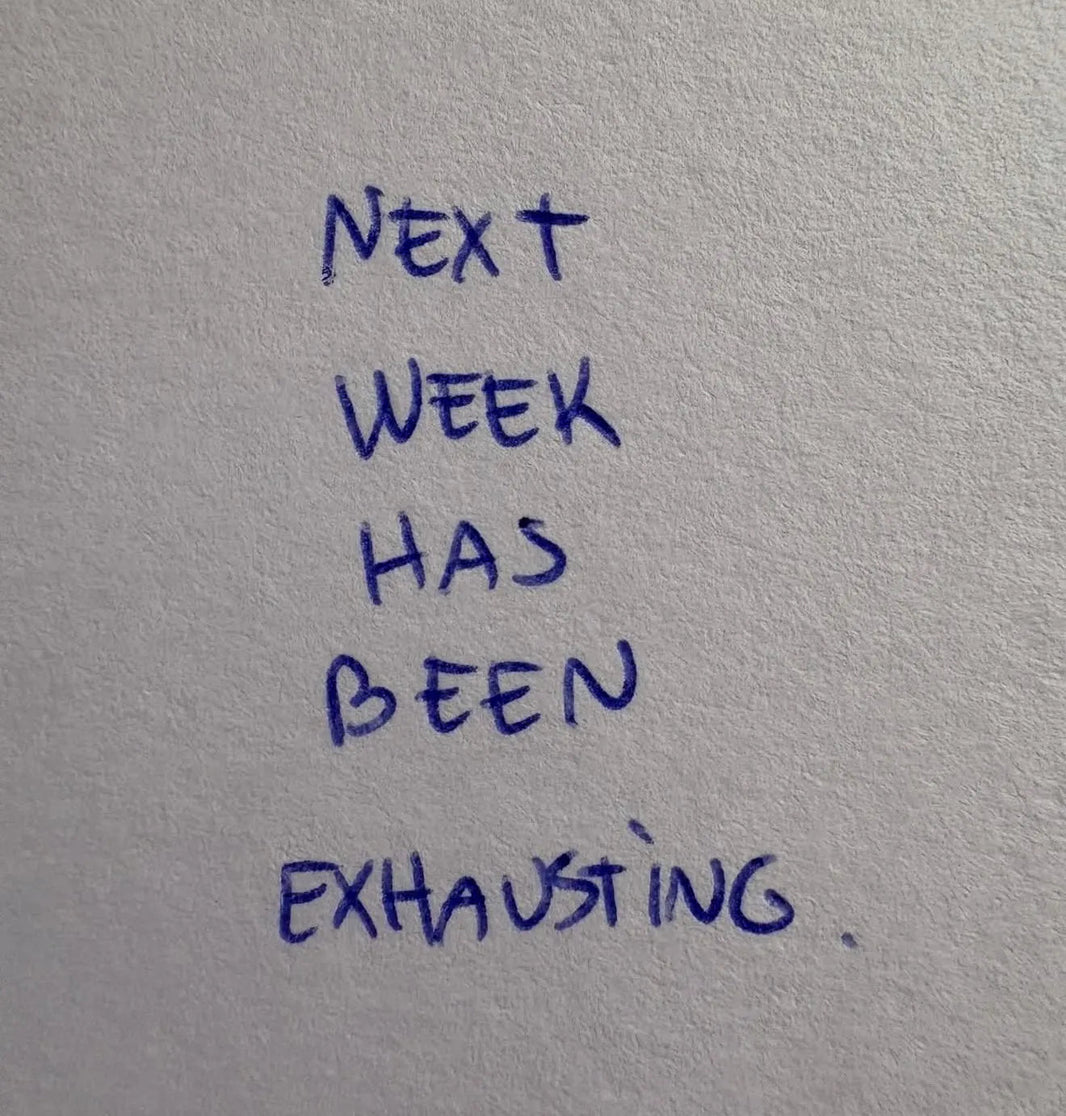 NEXT
WEEK
HAS
BEEN
EXHAUSTiNG.